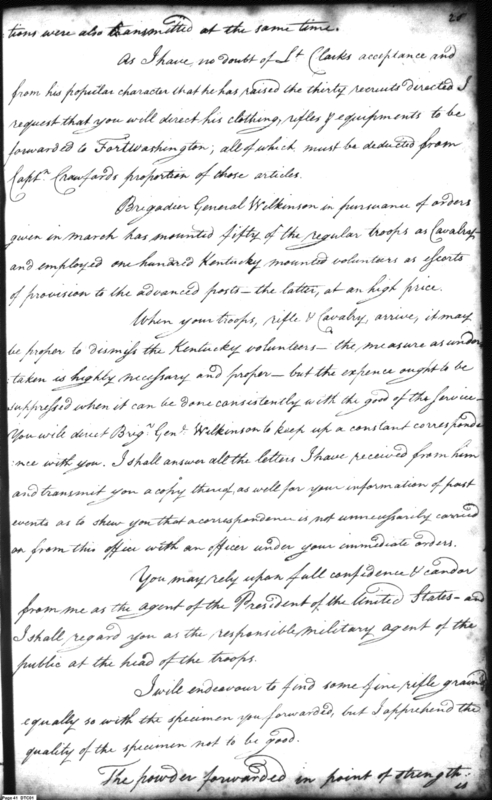 28
tions were also transmitted at the same time.
As I have no doubt of Lt Clarks acceptance and
from his popular character that he has raised the thirty recruits directed I
request that you will direct his clothing, rifles & equipments to be
forwarded to Fort Washington; all of which must be deducted from
Captn. Crawfords proportion of those articles.
Brigadier General Wilkinson in pursuance of orders
given in march has mounted fifty of the regular troops as Cavalry-
and employed one hundred Kentucky mounted volunteers as escorts
of provision to the advanced posts - the latter, at an high price.
When your troops, rifle & Cavalry, arrive, it may
be proper to dismiss the Kentucky volunteers - the measure as under
taken is highly necessary and proper - but the expence ought to be
suppressed when it can be done consistently with the good of the service -
You will direct Brigr. Genl. Wilkinson to keep up a constant corresponde
-nce with you. I shall answer all the letters I have received from him
and transmit you a copy thereof, as well for your information of past
events as to shew you that a correspondence is not unnecessarily carried
on from this office with an officer under your immediate orders.
You may rely upon full confidence & candor
from me as the agent of the President of the United States - and
I shall regard you as the responsible military agent of the
public at the head of the troops.
I will endeavour to find some fine, rifle grained
equally so with the specimen you forwarded, but I apprehend the
quality of the specimen not to be good.
The powder forwarded in point of strength
is
Page 41 DTC01